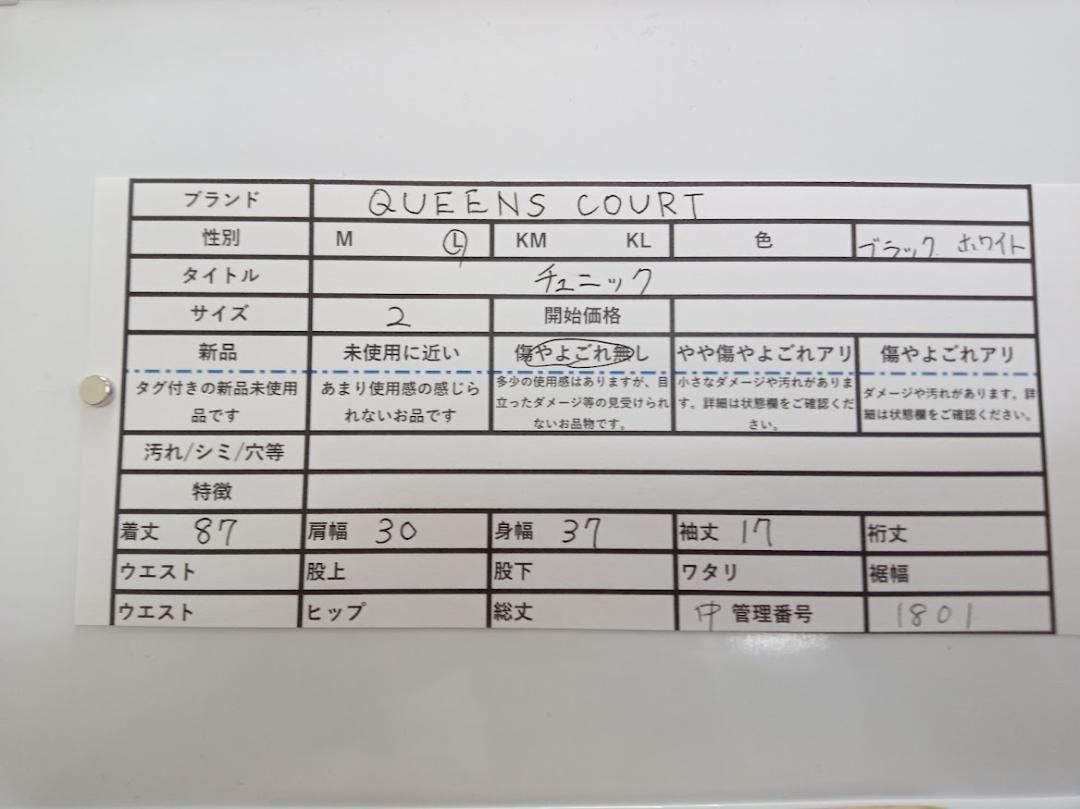 ブランド QUEENS COURT
性別 M L KM KL 色 ブラック ホワイト
タイトル チュニック
サイズ 2 開始価格
新品 未使用に近い 傷やよごれ無し やや傷やよごれアリ 傷やよごれアリ
タグ付きの新品未使用品です あまり使用感の感じられないお品です 多少の使用感はありますが、目立ったダメージ等の見受けられないお品物です。 小さなダメージや汚れがあります。詳細は状態欄をご確認ください。 ダメージや汚れがあります。詳細は状態欄をご確認ください。
汚れ/シミ/穴等
特徴
着丈 87 肩幅 30 身幅 37 袖丈 17 裄丈
ウエスト 股上 股下 ワタリ 裾幅
ウエスト ヒップ 総丈 中 管理番号 1801